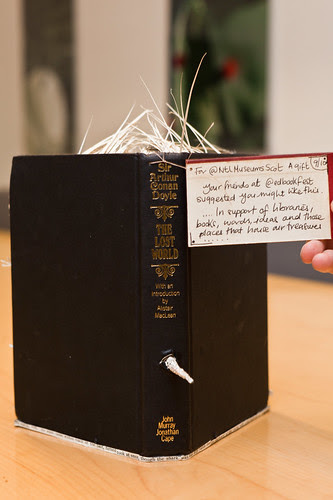 Sir
Arthur
Conan
Doyle
THE
LOST
WORLD
With an
introduction
by
Alistair
MacLean
John
Murray
Jonathan
Cape
For @NtlMuseumsScot A gift 9/10
Your friends at @edbookfest
suggested you might like this
.... In support of libraries,
books, words, ideas and those
places that house our treasures
......